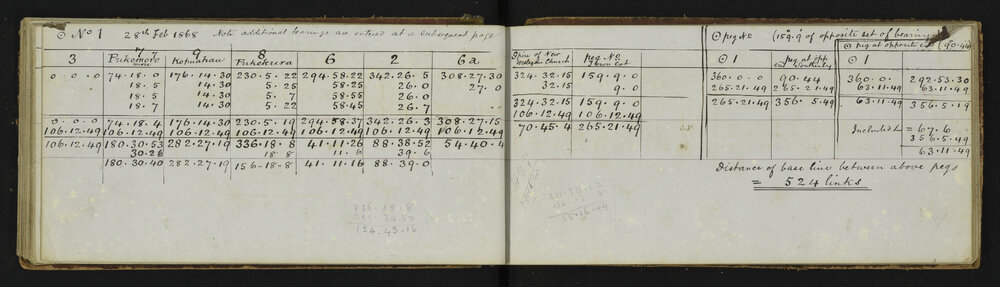 ⊙ No 1   28th Feb 1868   Note additional bearings are entered at a subsequent page
3   7 Pukemoremore   9 Kopuahau   8 Pukekura   6   2   6a
0.0.0   74.18.0   176.14.30   230.5.22   294.58.22   342.26.5   308.27.30
18.5   14.30   5.25   58.25   26.0   27.0
18.5   14.30   5.7   58.55   26.0
18.7   14.30   5.22   58.45   26.7
0.0.0   74.18.4   176.14.30   230.5.19   294.58.37   342.26.3   308.27.15
106.12.49   106.12.49   106.12.49   106.12.49   106.12.49   106.12.49   106.12.49
106.12.49   180.30.53   282.27.19   336.18.8   41.11.26   88.38.52   54.40.4
30.26   18.8   11.6   39.6
180.30.40   282.27.19   156.18.8   41.11.16   88.39.0
336.18.8
211.39.52
124.43.16
Spire of New Wesleyan Church   Peg No Town Lot
324.32.15   159.9.0
32.15   9.0
324.32.15   159.9.0
106.12.49   106.12.49
70.45.4   265.21.49
55.16.44
⊙ peg No   (159.9 of opposite set of bearings)
⊙ 1   Peg at opp end
360.0.0   90.44
265.21.49   265.21.49
265.21.49   356.5.49
⊙ peg at opposite end (90.44)
⊙ 1
360.0   292.53.30
63.11.49   63.11.49
63.11.49   356.5.19
Included L = 67.6
356.5.49
63.11.49
Distance of base line between above pegs
= 524 links